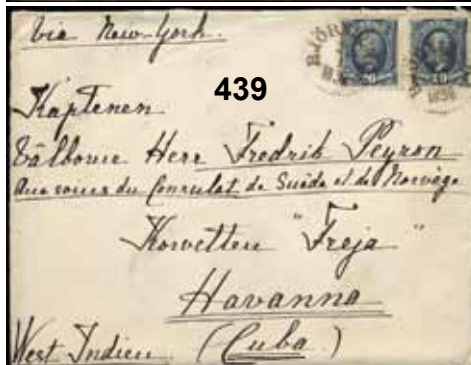 via New-York.
BJÖR
20
10
439
Kaptenen
Välborne Herr Fredrik Peyron
Aux soins du Consulat de Suède et de Norvège
Korvetten "Freja"
Havanna
West Indien (Cuba)